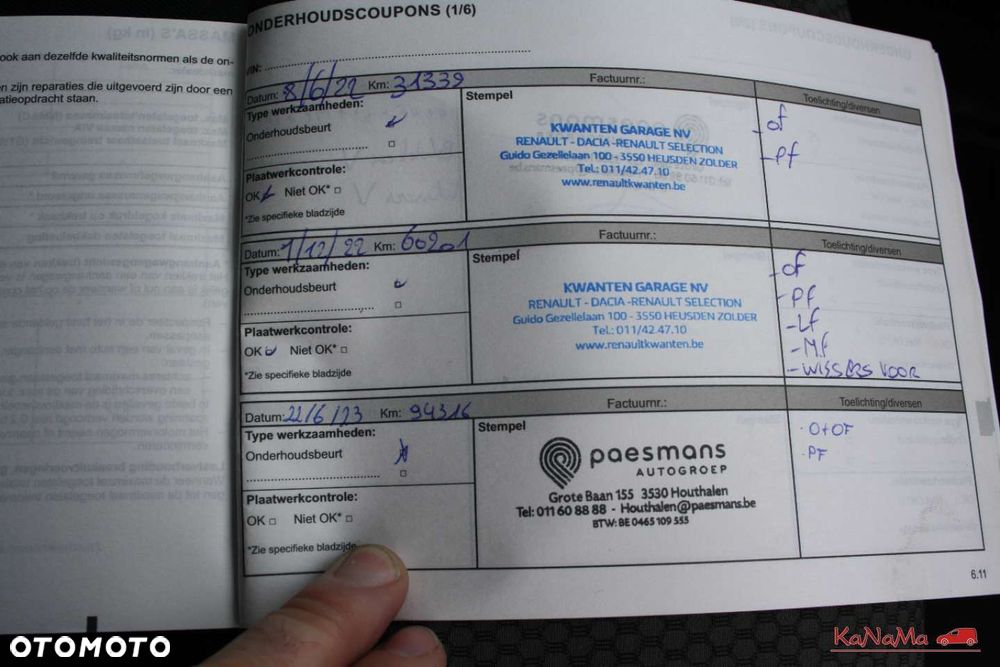 ook aan dezelfde kwaliteitsnormen als de on-
n zijn reparaties die uitgevoerd zijn door een
atieopdracht staan.
ONDERHOUDSCOUPONS (1/6)
VIN:
Datum: 8/6/22 Km: 31339 Factuurnr.:
Type werkzaamheden:
Onderhoudsbeurt
Plaatwerkcontrole:
OK Niet OK*
*Zie specifieke bladzijde
Stempel
KWANTEN GARAGE NV
RENAULT - DACIA - RENAULT SELECTION
Guido Gezellelaan 100 - 3550 HEUSDEN ZOLDER
Tel.: 011/42.47.10
www.renaultkwanten.be
Toelichting/diversen
- of
- Pf
Datum: 1/12/22 Km: 60201 Factuurnr.:
Type werkzaamheden:
Onderhoudsbeurt
Plaatwerkcontrole:
OK Niet OK*
*Zie specifieke bladzijde
Stempel
KWANTEN GARAGE NV
RENAULT - DACIA - RENAULT SELECTION
Guido Gezellelaan 100 - 3550 HEUSDEN ZOLDER
Tel.: 011/42.47.10
www.renaultkwanten.be
Toelichting/diversen
- of
- Pf
- Lf
- Mf
- WISSERS VOOR
Datum: 22/6/23 Km: 94316 Factuurnr.:
Type werkzaamheden:
Onderhoudsbeurt
Plaatwerkcontrole:
OK Niet OK*
*Zie specifieke bladzijde
Stempel
paesmans
AUTOGROEP
Grote Baan 155 3530 Houthalen
Tel: 011 60 88 88 - Houthalen@paesmans.be
BTW: BE 0465 109 555
Toelichting/diversen
· O+OF
· PF
6.11
OTOMOTO
KaNaMa